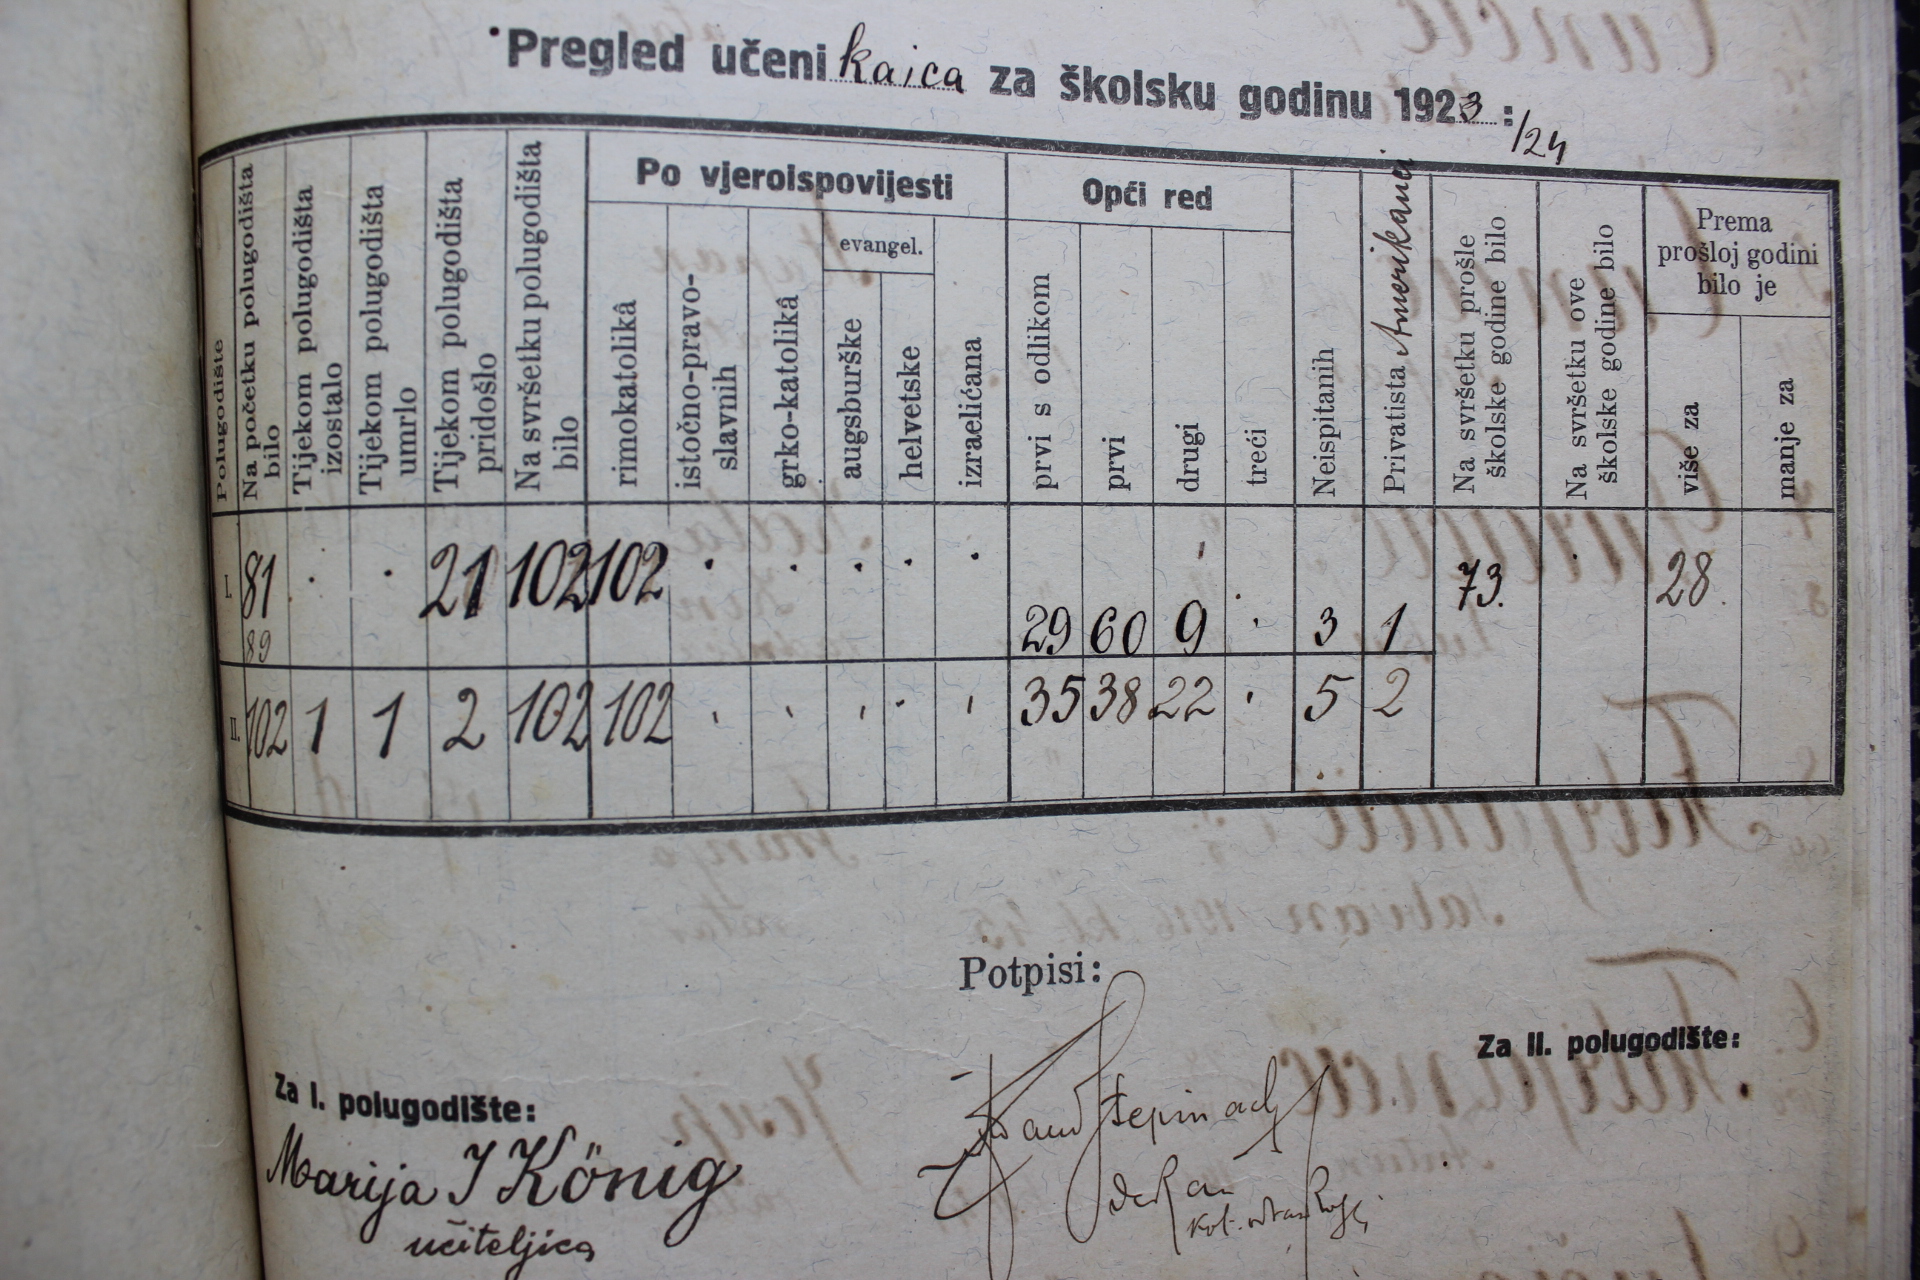 Pregled učenikaica za školsku godinu 1923:/24
Polugodište
Na početku polugodišta bilo
Tijekom polugodišta izostalo
Tijekom polugodišta umrlo
Tijekom polugodišta pridošlo
Na svršetku polugodišta bilo
Po vjeroispovijesti
rimokatolikâ
istočno-pravo-
slavnih
grko-katolikâ
evangel.
augsburške
helvetske
izraelićana
Opći red
prvi s odlikom
prvi
drugi
treći
Neispitanih
Privatista Amerikanci
Na svršetku prošle
školske godine bilo
Na svršetku ove
školske godine bilo
Prema
prošloj godini
bilo je
više za
manje za
I. 81 . . 21 102 102 . . . . . 29 60 9 . 3 1 73. . 28.
89
II. 102 1 1 2 102 102 . . . . . 35 38 22 . 5 2
Potpisi:
Za II. polugodište:
Za I. polugodište:
Marija J König
učiteljica
dekan